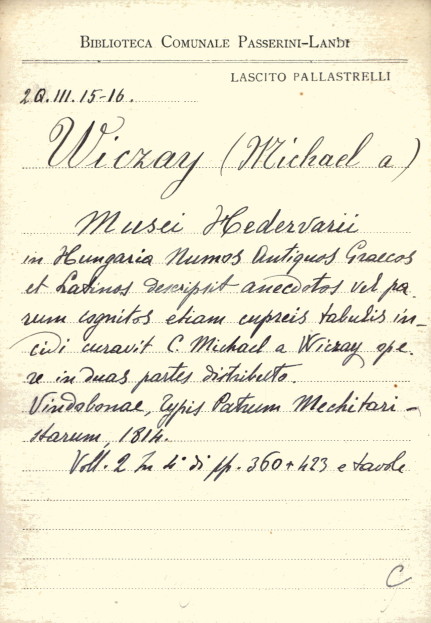 BIBLIOTECA COMUNALE PASSERINI-LANDI
LASCITO PALLASTRELLI
2Q.III.15-16.
Wiczay (Michael a)
Musei Hedervarii
in Hungaria Numos Antiquos Graecos
et Latinos descripsit anecdotos vel pa-
rum cognitos etiam cupreis tabulis in-
cidi curavit C. Michael a Wiczay ope-
re in duas partes distributo.
Vindobonae, typis Patrum Mechitari-
starum, 1814.
Voll. 2 in 4° di pp. 360+423 e tavole
C